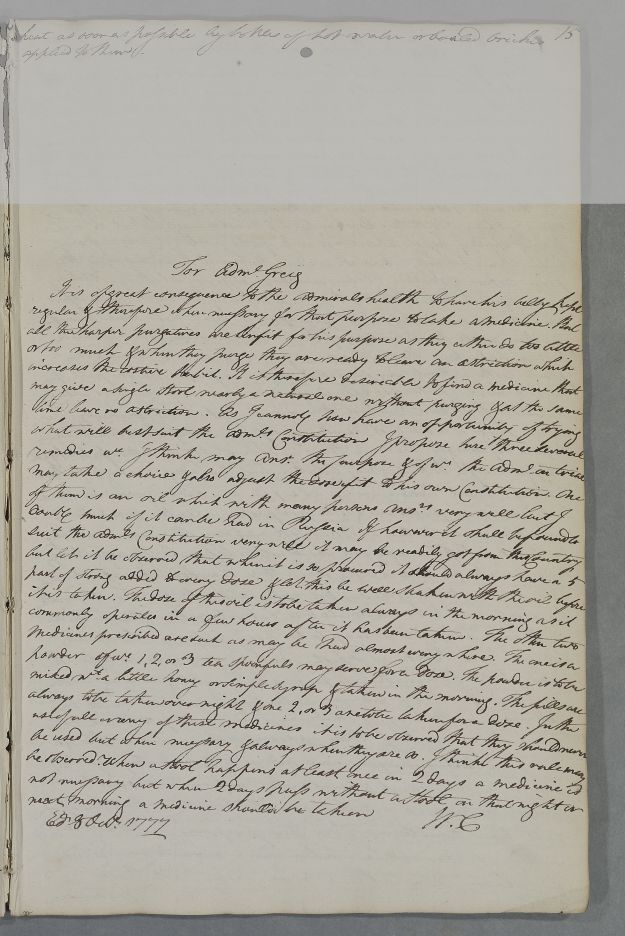 heat as soon as possible by bottles of hot water or heated bricks 15
applied to them.
For Adml Greig
It is of great consequence to the Admirals health to have his belly kept
regular & therefore when necessary for that purpose to take a medicine. But
all the sharper purgatives are unfit for his purpose as they either do too little
or too much & when they purge they are ready to leave an astriction which
increases the costive habit. It is therefore desireable to find a medicine that
may give a single stool nearly a natural one without purging & at the same
time leave no astriction. As I cannot now have an opportunity of trying
what will best suit the Admls Constitution I propose here three several
remedies wc. I think may ansr. the purpose & of wc. the Adml on trial
may take a choice & also adjust the dose fit to his own Constitution. One
of them is an oil which with many persons ansrs very well but I
doubt much if it can be had in Russia If however it shall be found to
suit the Admls Constitution very well it may be readily got from this Country
but let it be observed that when it is so procured it should always have a 5
part of added to every dose & let this be well shaken with the oil before
it is taken. The dose of this oil is to be taken always in the morning as it
commonly operates in a few hours after it has been taken. The other two
medicines prescribed are such as may be had almost every where. The one is a
powder of wc. 1, 2, or 3 tea spoonfuls may serve for a dose. The powder is to be
mixed wt. a little honey or simple syrup & taken in the morning. The pills are
always to be taken over night & one 2, or 3 are to be taken for a dose. In the
use of all & every of these medicines it is to be observed that they should never
be used but when necessary & always when they are so. I think this rule may
be observed. When a stool happens at least once in 2 days a medicine is
not necessary but when 2 days pass without a stool, on that night or
next morning a medicine should be taken
W. C
Edr 8 Octr. 1777